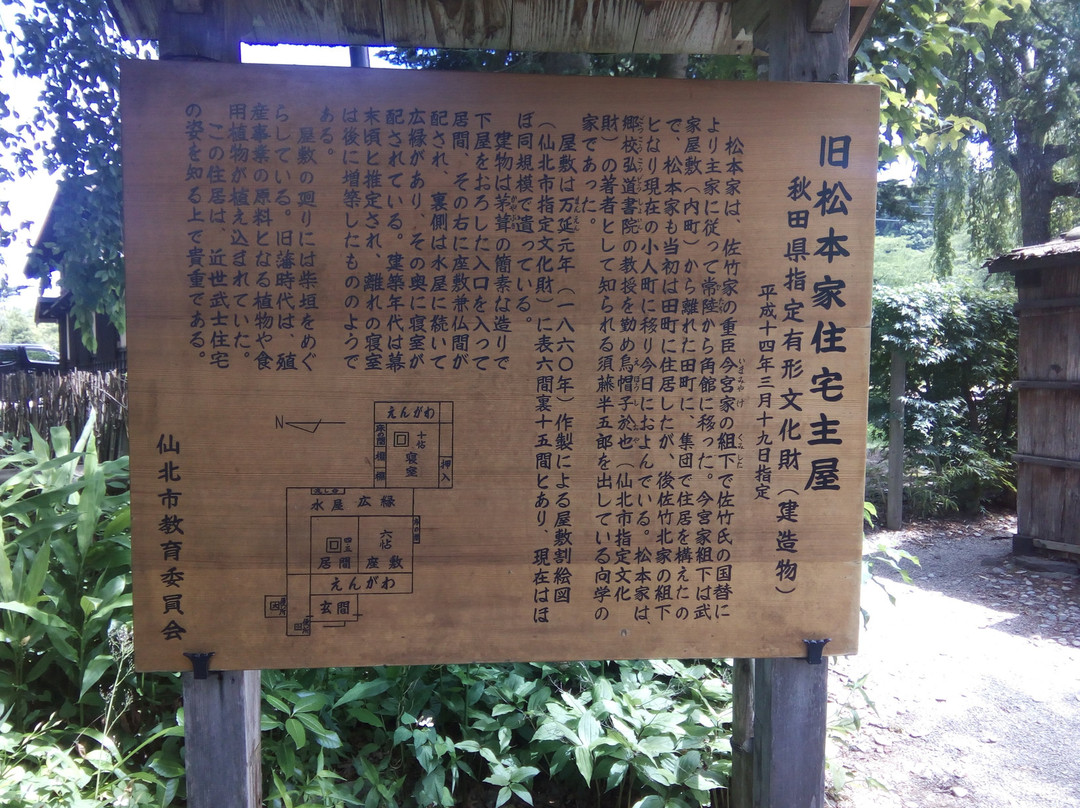 旧松本家住宅主屋
秋田県指定有形文化財(建造物)
平成十四年三月十九日指定
松本家は、佐竹家の重臣今宮家の組下で佐竹氏の国替に
より主家に従って常陸から角館に移った。今宮家組下は武
家屋敷(内町)から離れた田町に、集団で住居を構えたの
で、松本家も当初は田町に住居したが、後佐竹北家の組下
となり現在の小人町に移り今日におよんでいる。松本家は、
郷校弘道書院の教授を勤め烏帽子於也(仙北市指定文化
財)の著者として知られる須藤半五郎を出している向学の
家であった。
屋敷は万延元年(一八六〇年)作製による屋敷割絵図
(仙北市指定文化財)に表六間裏十五間とあり、現在はほ
ぼ同規模で遺っている。
建物は茅葺の簡素な造りで
下屋をおろした入口を入って
居間、その右に座敷兼仏間が
配され、裏側は水屋に続いて
広縁があり、その奥に寝室が
配されている。建築年代は幕
末頃と推定され、離れの寝室
は後に増築したもののようで
ある。
屋敷の廻りには柴垣をめぐ
らしている。旧藩時代は、殖
産事業の原料となる植物や食
用植物が植え込まれていた。
この住居は、近世武士住宅
の姿を知る上で貴重である。
仙北市教育委員会
N
えんがわ
十帖
寝室
押入
水屋
広縁
六帖
座敷
居間
えんがわ
玄関
いまみやけ
くみした
えぼしおや
かやぶき